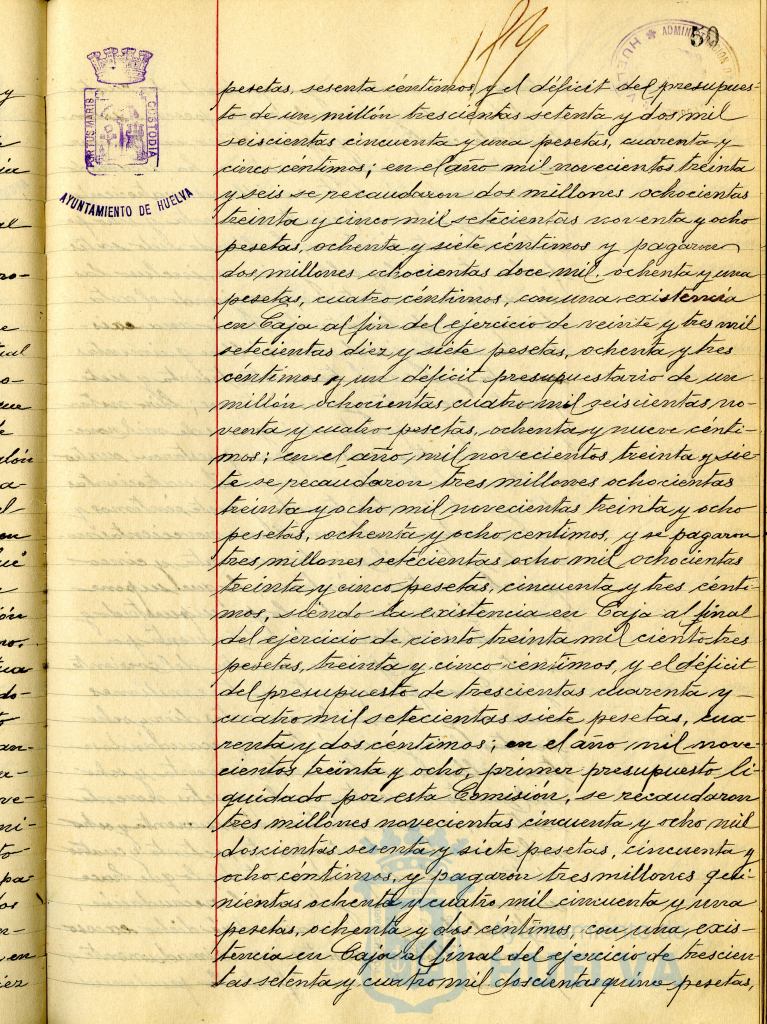 50
PORTUS MARIS CUSTODIA
AYUNTAMIENTO DE HUELVA
pesetas, sesenta céntimos, y el déficit del presupues-
to de un millón trescientas setenta y dos mil
seiscientas cincuenta y una pesetas, cuarenta y-
cinco céntimos; en el año mil novecientos treinta
y seis se recaudaron dos millones ochocientas
treinta y cinco mil setecientas noventa y ocho
pesetas, ochenta y siete céntimos y pagaron
dos millones ochocientas doce mil ochenta y una
pesetas, cuatro céntimos, con una existencia
en Caja al fin del ejercicio de veinte y tres mil
setecientas diez y siete pesetas, ochenta y tres
céntimos y un déficit presupuestario de un
millón ochocientas cuatro mil seiscientas no-
venta y cuatro pesetas, ochenta y nueve cénti-
mos; en el año mil novecientos treinta y sie-
te se recaudaron tres millones ochocientas
treinta y ocho mil novecientas treinta y ocho
pesetas, ochenta y ocho centimos, y se pagaron
tres millones setecientas ocho mil ochocientas
treinta y cinco pesetas, cincuenta y tres cénti-
mos, siendo la existencia en Caja al final
del ejercicio de ciento treinta mil ciento tres
pesetas, treinta y cinco céntimos, y el déficit
del presupuesto de trescientas cuarenta y-
cuatro mil setecientas siete pesetas, cua-
renta y dos céntimos; en el año mil nove-
cientos treinta y ocho, primer presupuesto li-
quidado por esta Comisión, se recaudaron
tres millones novecientas cincuenta y ocho mil
doscientas sesenta y siete pesetas, cincuenta y
ocho céntimos, y pagaron tres millones qui-
nientas ochenta y cuatro mil cincuenta y una
pesetas, ochenta y dos céntimos, con una exis-
tencia en Caja al final del ejercicio de trescien-
tas setenta y cuatro mil doscientas quince pesetas,
HUELVA